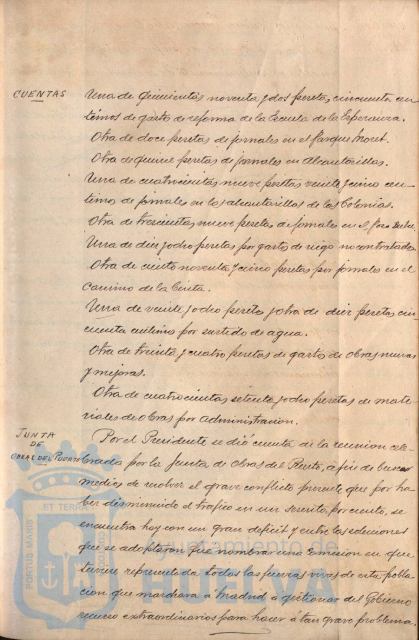 CUENTAS
Una de quinientas noventa y dos pesetas, cincuenta cen-
timos de gasto de reforma de la Escuela de la Esperanza.
Otra de doce pesetas de jornales en el Parque Moret.
Otra de quince pesetas de jornales en Alcantarillas.
Una de cuatrocientas nueve pesetas veinte y cinco cen-
timos de jornales en las alcantarillas de las Colonias.
Otra de trescientas nueve pesetas de jornales en el
Una de diez y ocho pesetas por gastos de riego no contratado
Otra de ciento noventa y cinco pesetas por jornales en el
Camino de la Cinta.
Una de veinte y ocho pesetas y otra de diez pesetas cin-
cuenta centimos por surtido de agua.
Otra de treinta y cuatro pesetas de gastos de obras nuevas
y mejoras.
Otra de cuatrocientas setenta y ocho pesetas de mate-
riales de obras por administracion.
JUNTA
DE
OBRAS DEL PUERTO
Por el Presidente se dió cuenta de la reunion cele-
brada por la Junta de Obras del Puerto, á fin de buscar
medios de resolver el grave conflicto presente, que por ha-
ber disminuido el trafico en un sesenta por ciento, se
encuentra hoy con un gran deficit y entre las soluciones
que se adoptaron fue nombrar una Comision en que
tuviese representacion todas las fuerzas vivas de esta pobla-
cion, que marchara á Madrid á gestionar del Gobierno
recursos extraordinarios para hacer á tan grave problema
PORTUS MARIS ET TERRAE
Ayuntamiento de